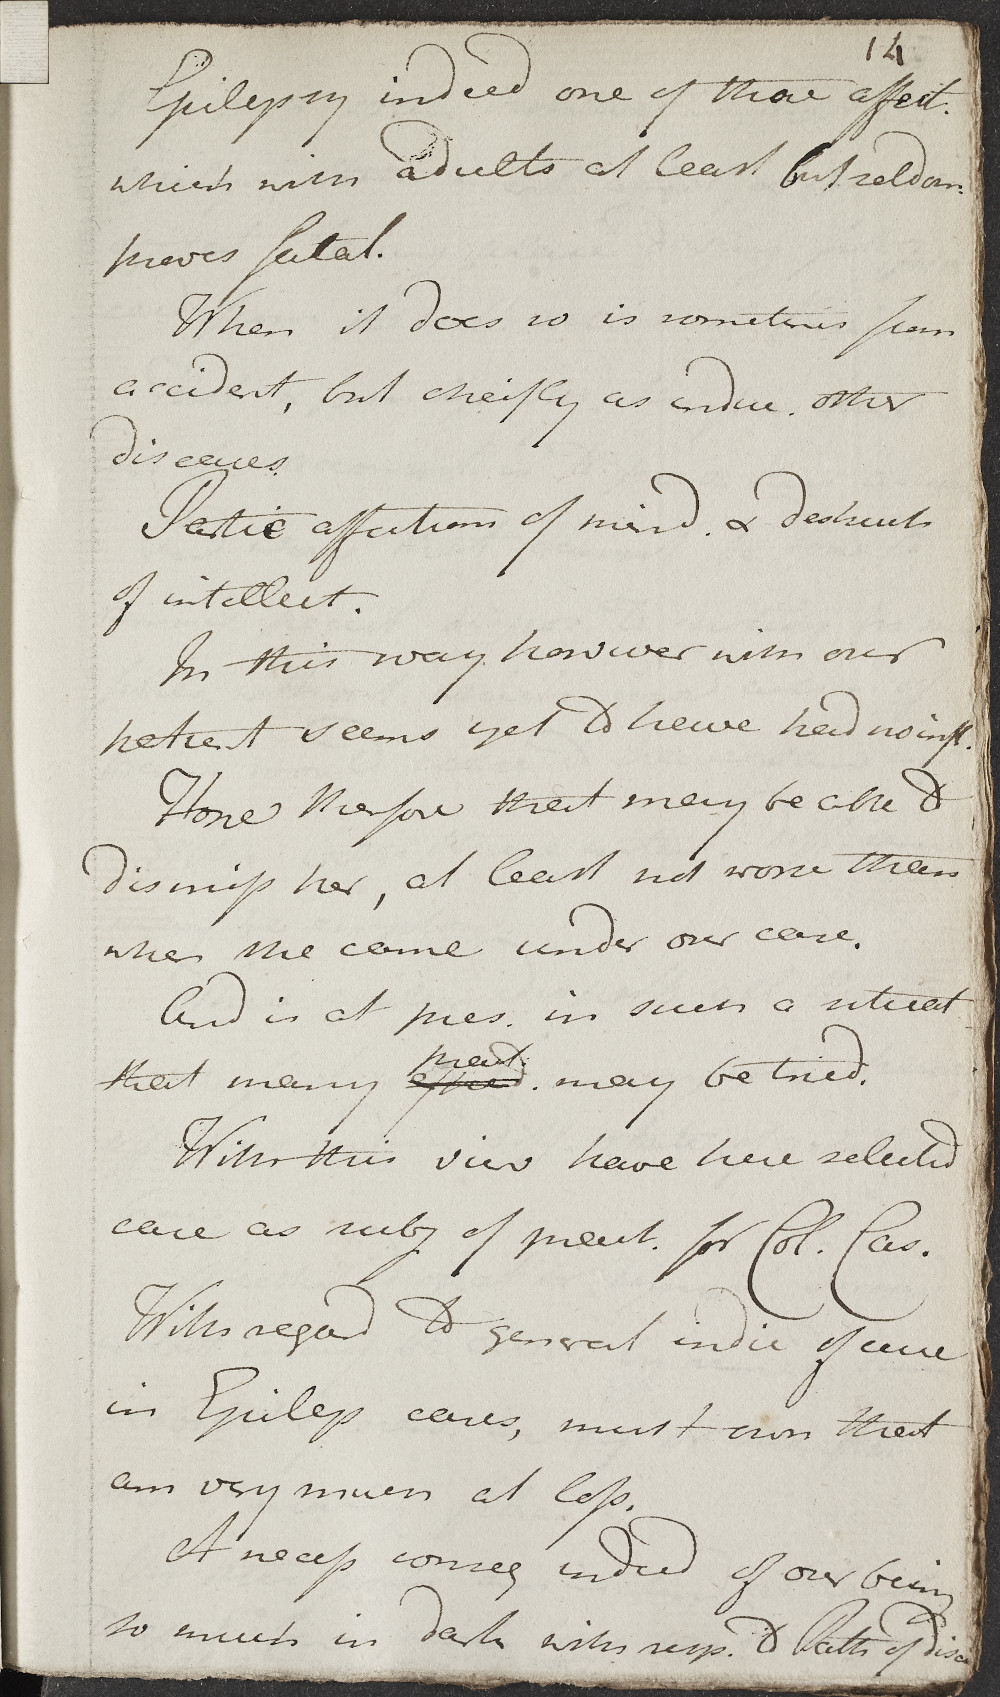 14
Epilepsy indeed one of those affect.
which with adults at least but seldom
proves fatal.
When it does so is sometimes from
accident, but cheifly as induc. other
diseases.
Partic affections of mind. & destruct
of intellect.
In this way however with our
patient seems yet to have had no infl.
Hope therfore that may be able to
dismiss her, at least not worse than
when she came under our care.
And is at pres. in such a situat
that many pract. may be tried.
With this view have here selected
case as subj of pract. for Col. Cas.
With regard to general indic of cure
in Epilep cases, must own that
am very much at loss.
A necess conseq indeed of our being
so much in dark with resp. to Path of disea